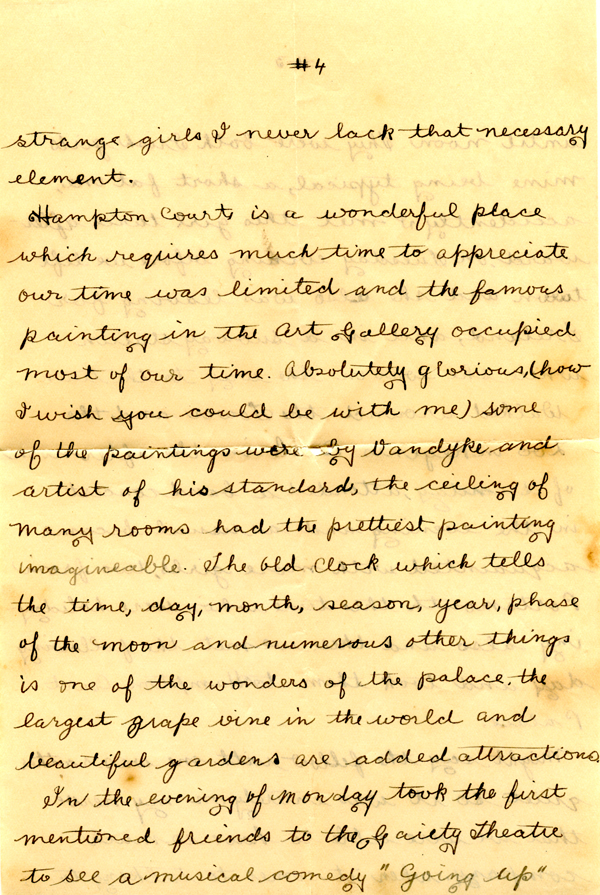 #4
strange girls I never lack that necessary
element.
Hampton Court is a wonderful place
which requires much time to appreciate
our time was limited and the famous
painting in the Art Gallery occupied
most of our time. Absolutely glorious, (how
I wish you could be with me) some
of the paintings were by Vandyke and
artist of his standard, the ceiling of
many rooms had the prettiest painting
imagineable. The old Clock which tells
the time, day, month, season, year, phase
of the moon and numerous other things
is one of the wonders of the palace. the
largest grape vine in the world and
beautiful gardens are added attractions
In the evening of Monday took the first
mentioned friends to the Gaiety Theatre
to see a musical comedy "Going up"